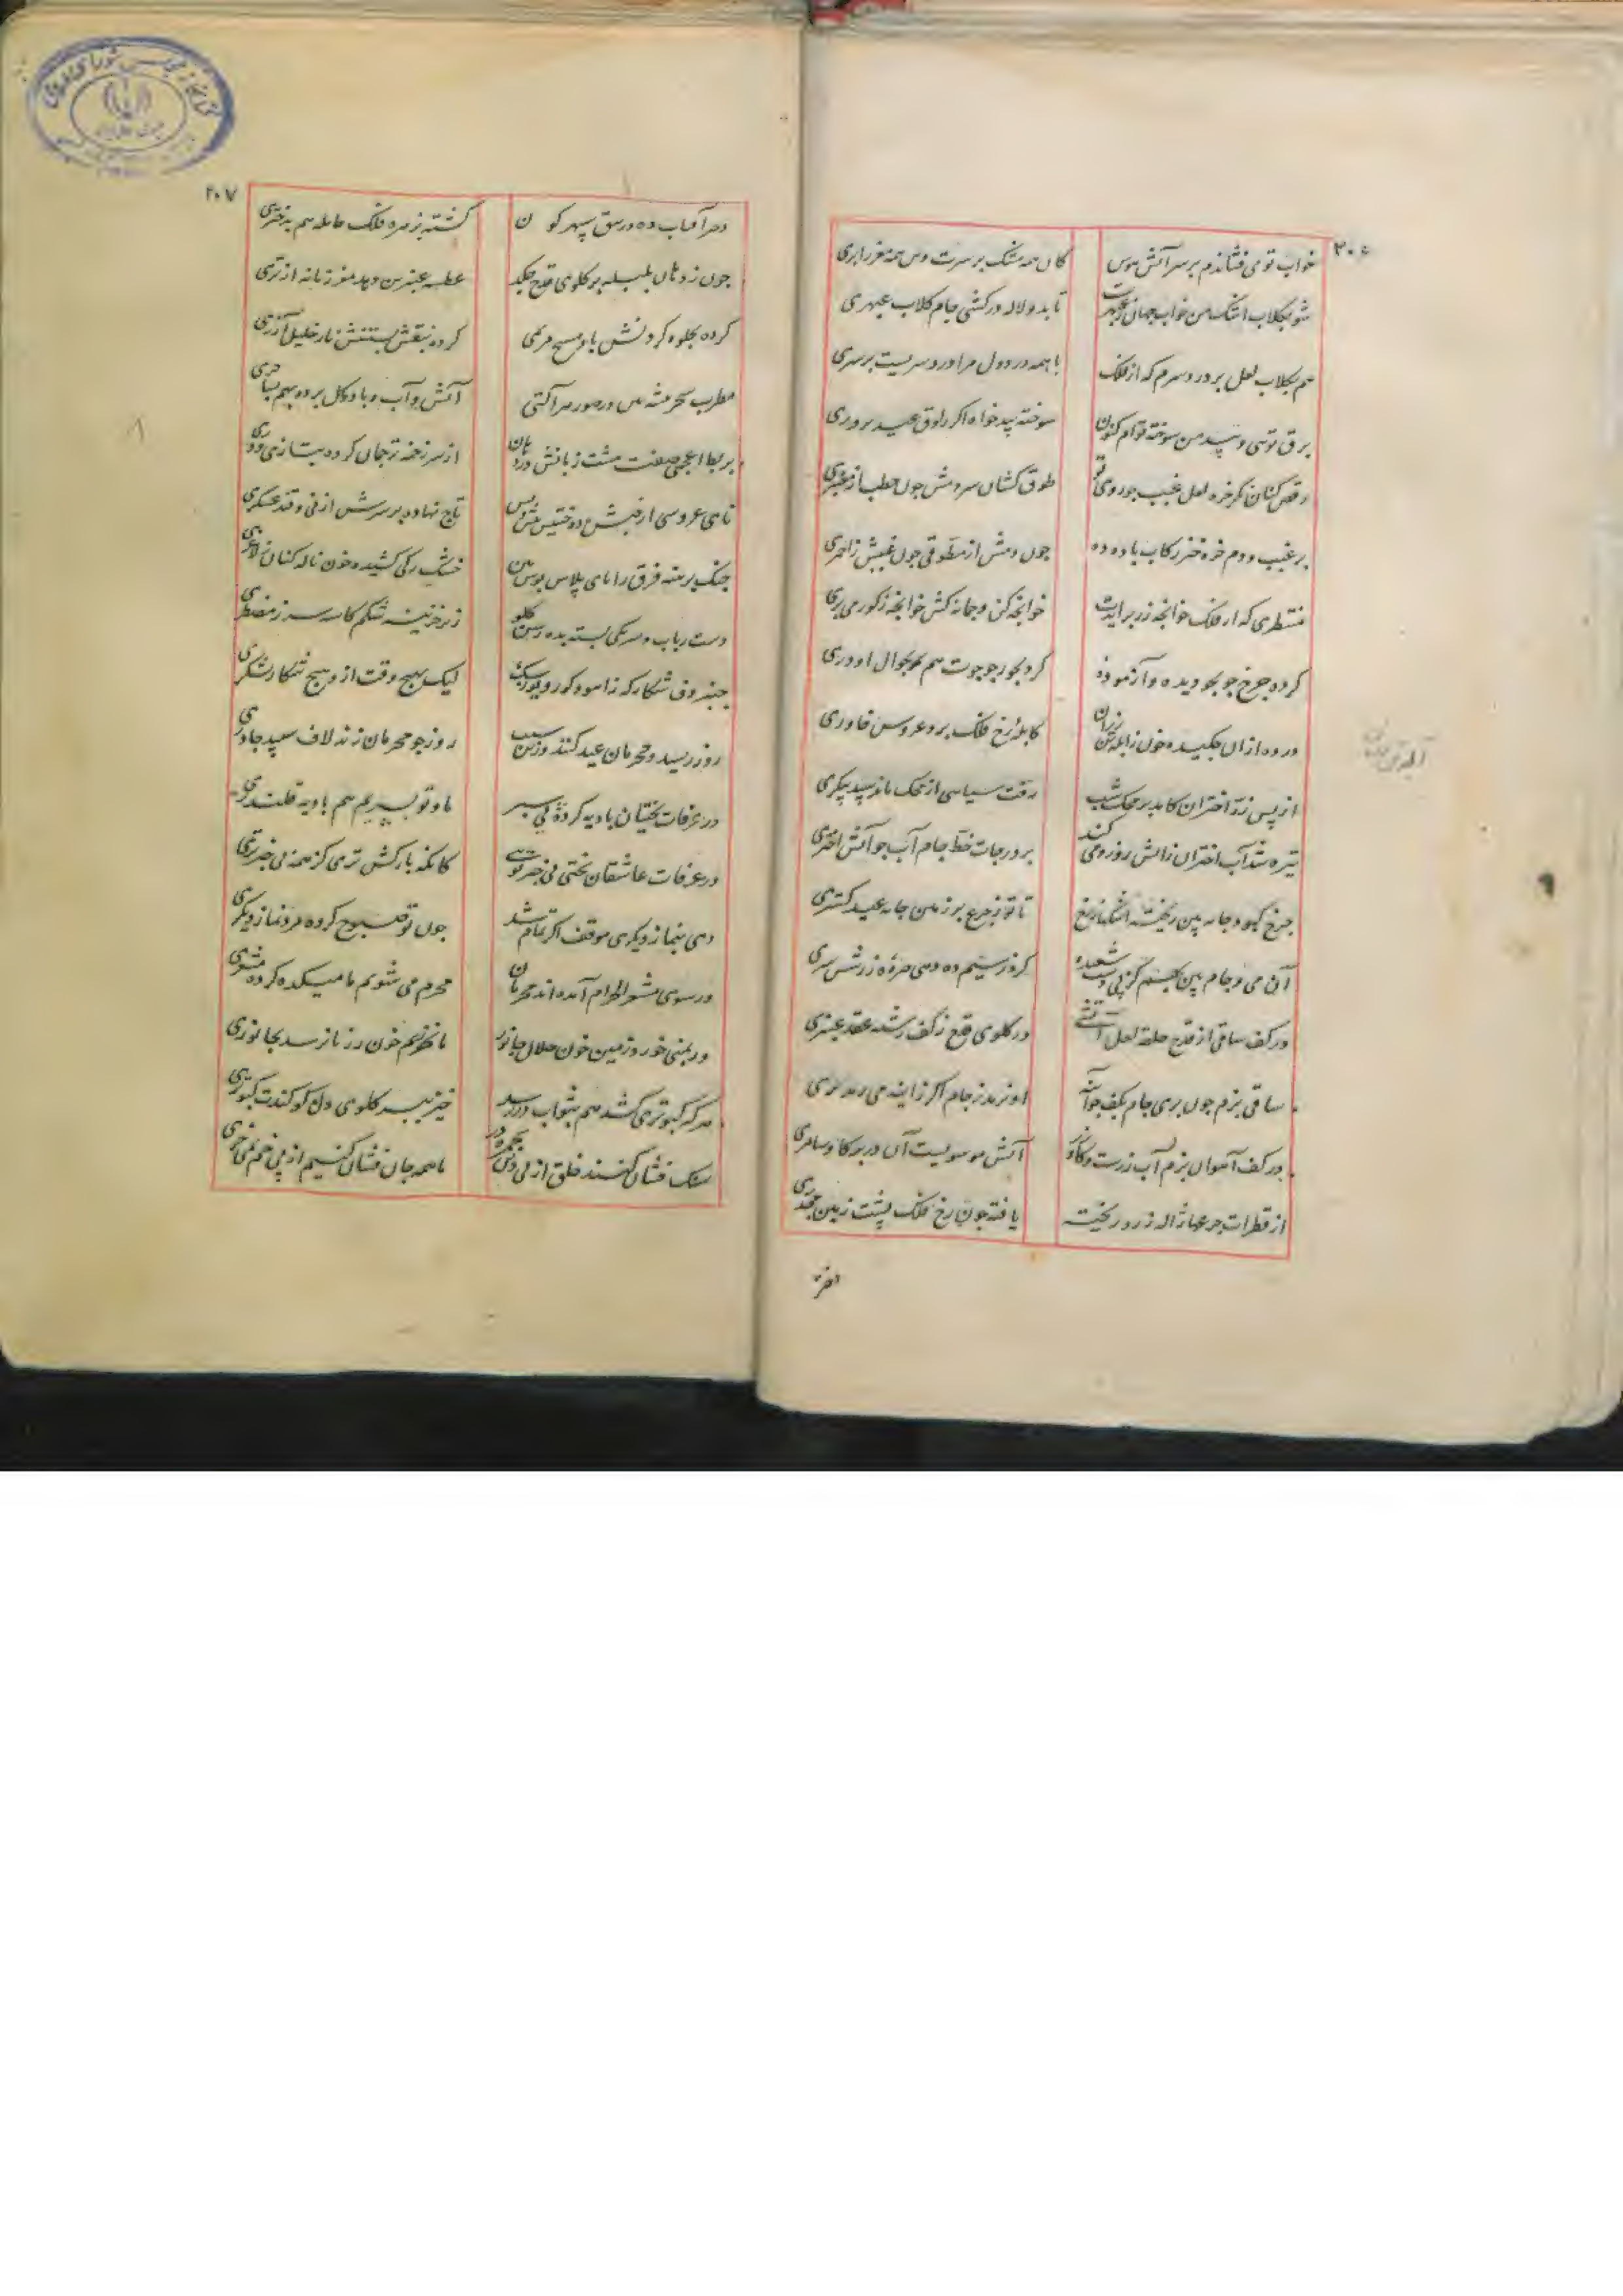 ۲۰۶
خواب تو می فشاندم بر سر آتش هوس
کان همه مشک بر سرت وین همه مغز را بری
شو بکلاب اشک من خواب جهان ز عبهرت
تا بدو لاله درکشی جام کلاب عبهری
هم بکلاب لعل بر درد سرم که از فلک
با همه درد دل مرا درد سریست بر سری
برق توئی و بید من سوخته توام کنون
سوخته بید خواه اکر راوق عید پروری
رقص کنان نکر خره لعل غبب چو روی تو
طوق کشان سرو دمش چون خطب از معنبری
بر غبب و دم خره خیز رکاب باده ده
چون دمش از مطوقی چون غببش ز احمری
منتظری که از فلک خوانچه زر برآیدت
خوانچه کن و چمانه کش خوانچه زکور می بری
کرده چرخ جو بجو دیده و آزموده
کرد بجور جو جوت هم تو بجوال او دری
در ده از ان چکیده خون ز آبله تن رزان
کابله رخ فلک برد عروس خاوری
از پس زر اختران کامد بر محک شب
رفت سیاهی از محک ماند سپید پیکری
تیره شد آب اختران ز آتش روز و می کند
بر درجات خط جام آب چو آتش اختری
چرخ کبود جامه بین ریخته اشکها ز رخ
تا تو ز جرعه بر زمین جامه عید کستری
آن می و جام بین بهم کز پی شعبده
کرد ز سیم ده دهی صره زر شش سری
در کف ساقی از قدح حلقه لعل آتشی
در کلوی قدح ز کف رشته عقد عنبری
ساقی بزم چون پری جام بکف چو آینه
او نرمد ز جام اکر ز آینه می رمد پری
در کف آهوان بزم آب زرست و کاو زر
آتش موسویست آن در بر کاو سامری
از قطرات جرعها ژاله زرد ریخته
یافته چون رخ فلک پشت زمین مجدری
۲۰۷
کشته بزهره فلک حامله هم بدختری
چون ز دهان بلبله بر کلوی قدح چکد
عطسه عنبرین دهد مغز زمانه از تری
کرده بجلوه کردنش باد مسیح مریمی
کرده بنقش بستنش نار خلیل آزری
آتش و آب و باد و کل برده بهم بساحری
بربط اعجمی صفت هشت زبانش در دهان
از سر زخمه ترجمان کرده بتازی و دری
نای عروسی از حبش ده ختنیش پیش و پس
تاج نهاده بر سرش از نی و قند عسکری
چنک برهنه فرق را پای پلاس پوش بین
خشک رکی کشیده خون ناله کنان ز لاغری
دست رباب و سر یکی بسته بده رسن کلو
زیر خزینه شکم کاسه سر ز مضطری
چنبر دف شکارکه ز آهو و کور و یوز و سک
لیک بهیچ وقت ازو هیچ شکار نشکری
روز رسید و محرمان عید کنند زین سبب
روز چو محرمان زند لاف سپید چادری
در عرفات بختیان بادیه کرده پی سپر
ما و تو بسپریم هم بادیه قلندری
در عرفات عاشقان بختی بی خبر توئی
کانکه بارکش تری کز همه بی خبرتری
دی بنماز دیکری موقف اکر تمام شد
چون تو صبوح کرده مرد نماز دیکری
ور سوی مشعر الحرام آمده اند محرمان
محرم می شویم ما میکده کرده مشعری
ور بمنی خورد زمین خون حلال جانور
ما نخوریم خون رز تا نرسد بجانوری
هر که کبوتری کشد هم بثواب در رسد
خیز ببر کلوی دن کو کندت کبوتری
سنک فشان کنند خلق از پی دین بجمره در
ما همه جان فشان کنیم از پی خم بمی خوری